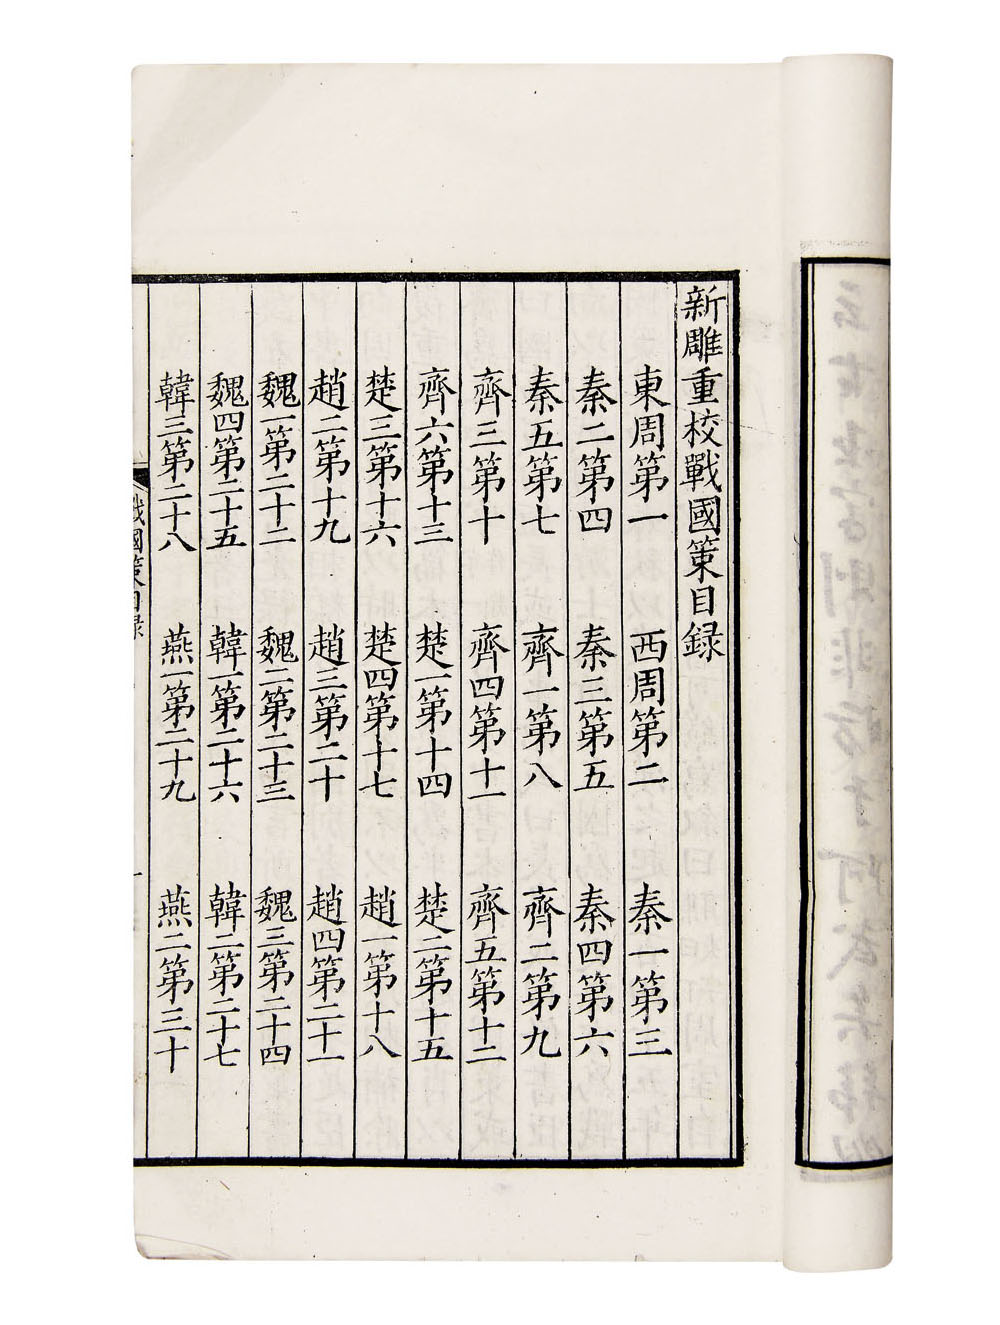 新雕重校戰國策目録
東周第一 西周第二 秦一第三
秦二第四 秦三第五 秦四第六
秦五第七 齊一第八 齊二第九
齊三第十 齊四第十一 齊五第十二
齊六第十三 楚一第十四 楚二第十五
楚三第十六 楚四第十七 趙一第十八
趙二第十九 趙三第二十 趙四第二十一
魏一第二十二 魏二第二十三 魏三第二十四
魏四第二十五 韓一第二十六 韓二第二十七
韓三第二十八 燕一第二十九 燕二第三十
戰國策目録 一